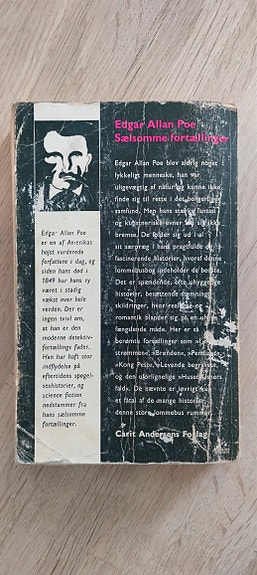 Edgar Allan Poe
Sælsomme fortællinger
Edgar Allan Poe
er en af Amerikas
højst vurderede
forfattere i dag, og
siden hans død i
1849 har hans ry
været i stadig
vækst over hele
verden. Der er
ingen tvivl om,
at han er den
moderne detektiv-
fortællings fader.
Han har haft stor
indflydelse på
eftertidens spøgel-
seshistorier, og
science fiction
nedstammer fra
hans sælsomme
fortællinger.
Edgar Allan Poe blev aldrig noget
lykkeligt menneske, han var
uligevægtig af natur og kunne ikke
finde sig til rette i det borgerlige
samfund. Men hans stærke fantasi
og kunstneriske evner lod sig ikke
bremse. De folder sig ud i al
sit særpræg i hans pragtfulde og
fascinerende historier, hvoraf denne
lommebusbog indeholder de bedste.
Det er spændende, ofte uhyggelige
historier, besættende stemnings-
skildringer, hvor realisme og
romantik blander sig på en
fængslende måde. Her er så
berømte fortællinger som
strømmen«, »Brønden«,
»Kong Peste«, »Levende begravet«,
og den uforlignelige »Huset Ushers
fald«. De nævnte er iøvrigt kun
et fåtal af de mange historier
denne store lommebus rummer.
Carit Andersens Forlag